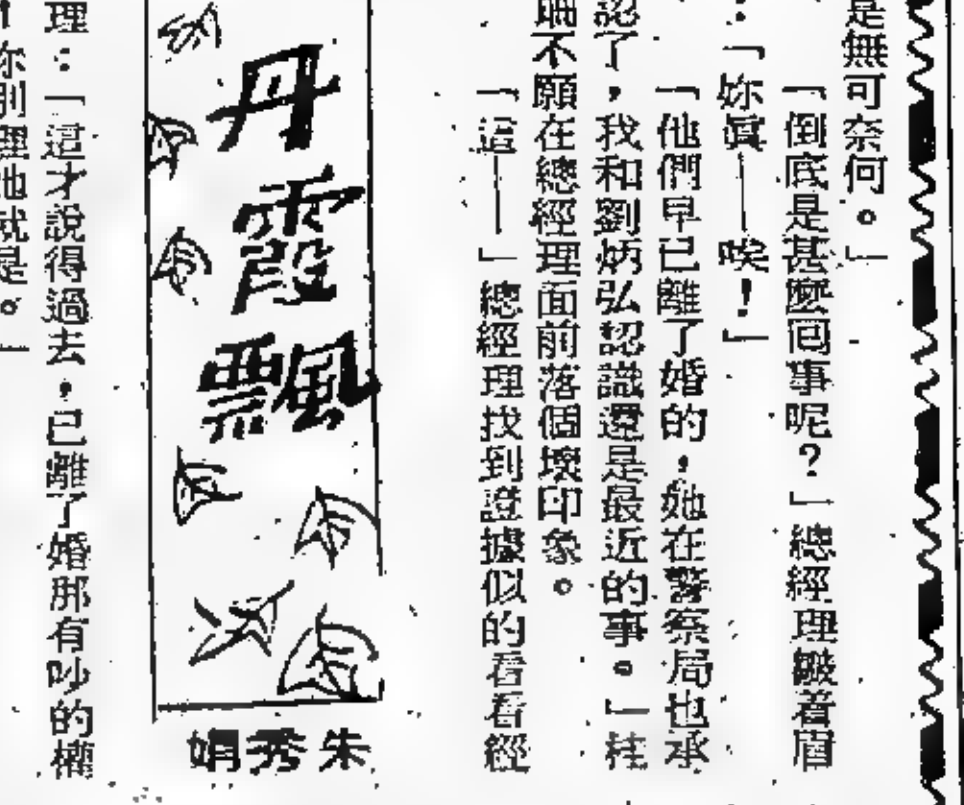 是無可奈何。」
「倒底是甚麼回事呢？」總經理皺着眉
：「妳真——唉！」
「他們早已離了婚的，她在警察局也承
認了，我和劉炳弘認識還是最近的事。」桂
珊不願在總經理面前落個壞印象。
「這——」總經理找到證據似的看看經
丹霞飄
朱秀娟
理：「這才說得過去，已離了婚那有吵的權
妳別理他就是。」